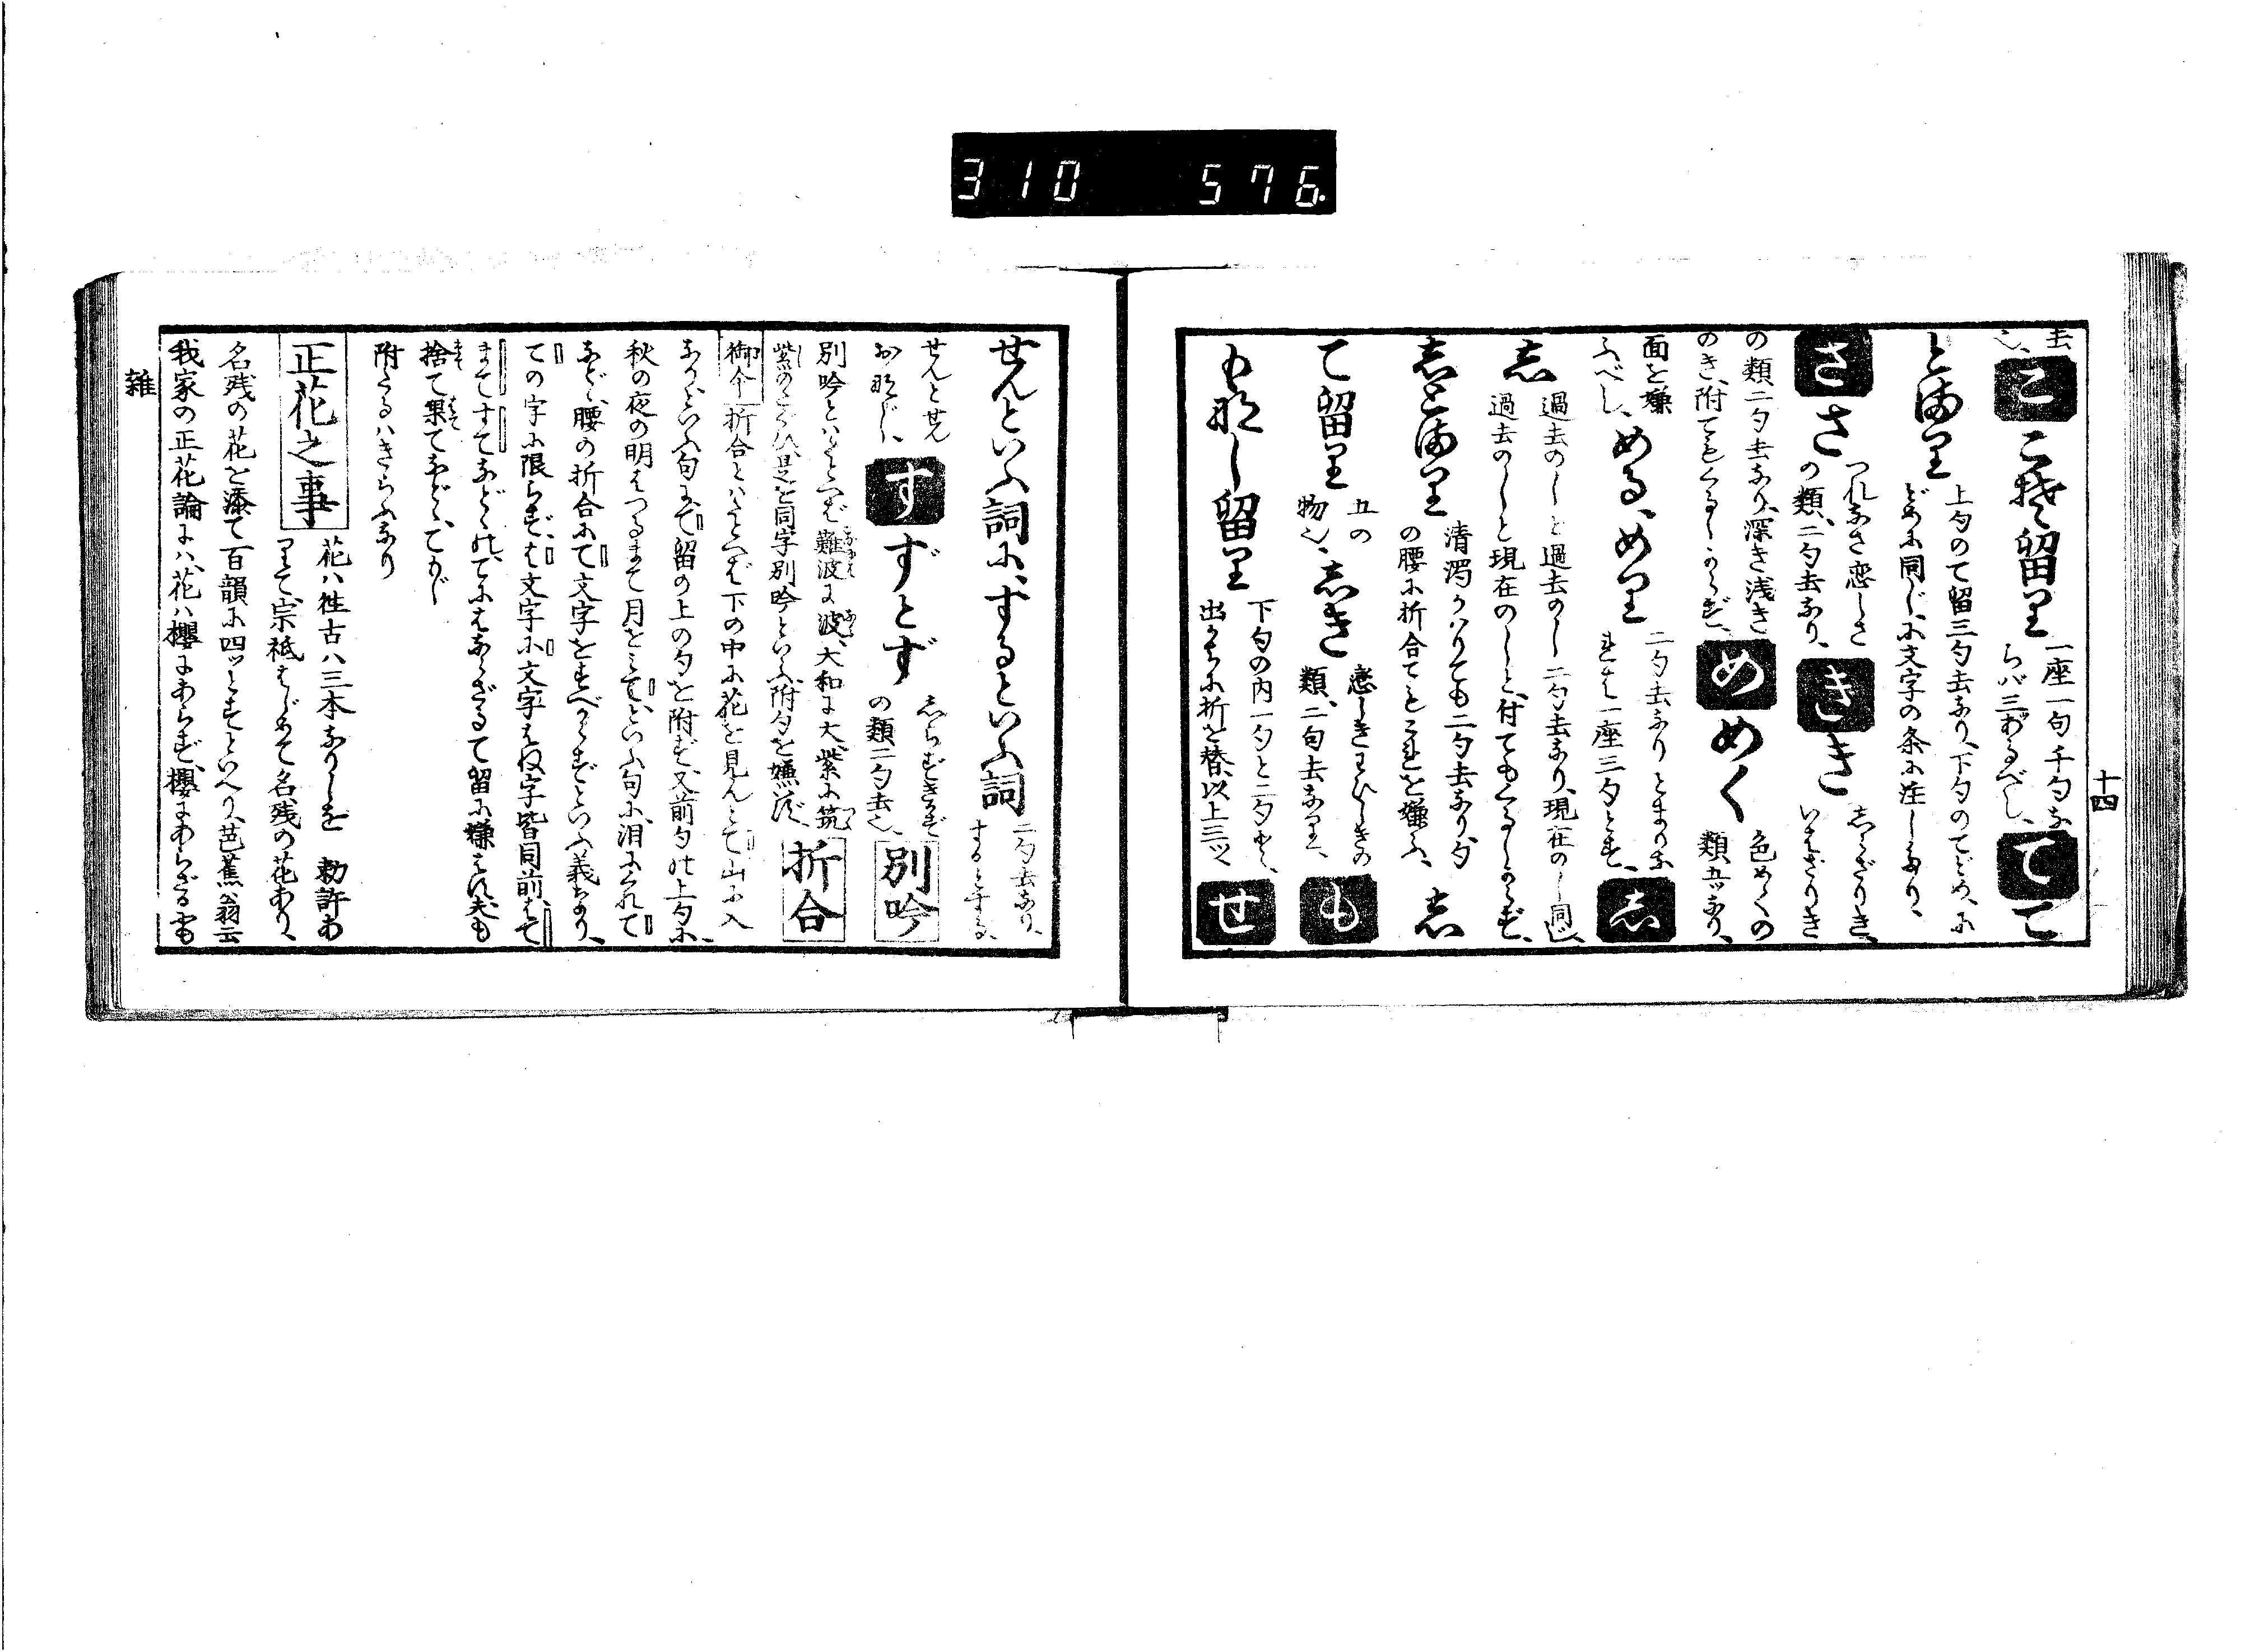 310 576
十四
去
也、
こ
こそ留里
一座一句千句な
らバ三あるべし、
て
て
とまり
上句のて留三句去なり、下句のてどめ、に
どめに同じ、に文字の条に注しあり、
さ
さ
つれなさ恋しさ
の類、二句去なり、
き
き
しらざりき、
いはざりき
の類二句去なり、深き浅き
のき、附てもくるしからず、
め
めく
色めくの
類五ツなり、
面を嫌
ふべし、
める、めり
二句去なりとまりな
れば一座三句とも、
し
し
過去のしと過去のし二句去なり、現在のし同し、
過去のしと現在のしと、付てもくるしからず、
しとまり
清濁かハりても二句去なり、句
の腰に折合てもこれを嫌ふ、
し
て留り
五の
物也、
しき
恋しきわびしきの
類、二句去なり、
も
もなし留り
下句の内一句と二句也、
出るに折を替、以上三ツ
せ
せんといふ詞に、するといふ詞
二句去なり、
するとする、
せんとせん
おなじ、
す
ずとず
しらずきかず
の類二句去也、
別吟
別吟とハたとへば難波に波、大和に大、紫に筑
紫のたぐひ是を同字別吟といふ附句を嫌ず、
折合
御傘 折合とハたとへば下の中に花を見んとて山に入
ながらといふ句にて留の上の句を附ず、又前句の上句に、
秋の夜の明はつるまて月をみて、といふ句に、泪にくれて
など、腰の折合にて文字をすべからずといふ義なり、
ての字に限らず、は文字に文字はね字皆同前、はて
まてすてなど、の、てにはならざるて留に嫌はず、夫も
捨て果てなど、てかし
附たるハきらふなり
正花之事
花ハ往古ハ三本なりしを 勅許あ
りて、宗祇はじめて名残の花あり、
名残の花を添て百韻に四ツとすといへり、芭蕉翁云
我家の正花論にハ、花ハ櫻にあらず、櫻にあらざるにも
雜